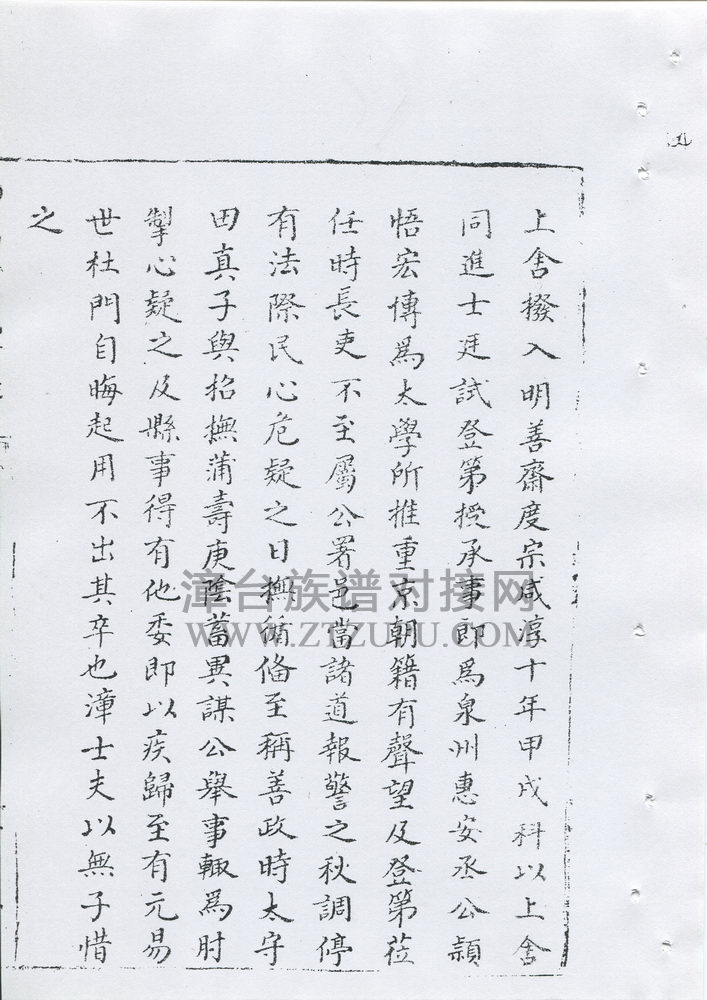 上舍撥入明善齋度宗咸淳十年甲戌科以上舍
同進士廷試登第授承事郎爲泉州惠安丞公穎
悟宏博爲太學所推重京朝籍有聲望及登第莅
任時長吏不至屬公署邑當諸道報警之秋調停
有法際民心危疑之日撫循俻至稱善政時太守
田真子與招撫蒲壽庚陰蓄異謀公舉事輙爲肘
掣心疑之及縣事得有他委即以疾歸至有元易
世杜門自晦起用不出其卒也漳士夫以無子惜
之
漳台族谱对接网
WWW.ZTZUPU.COM